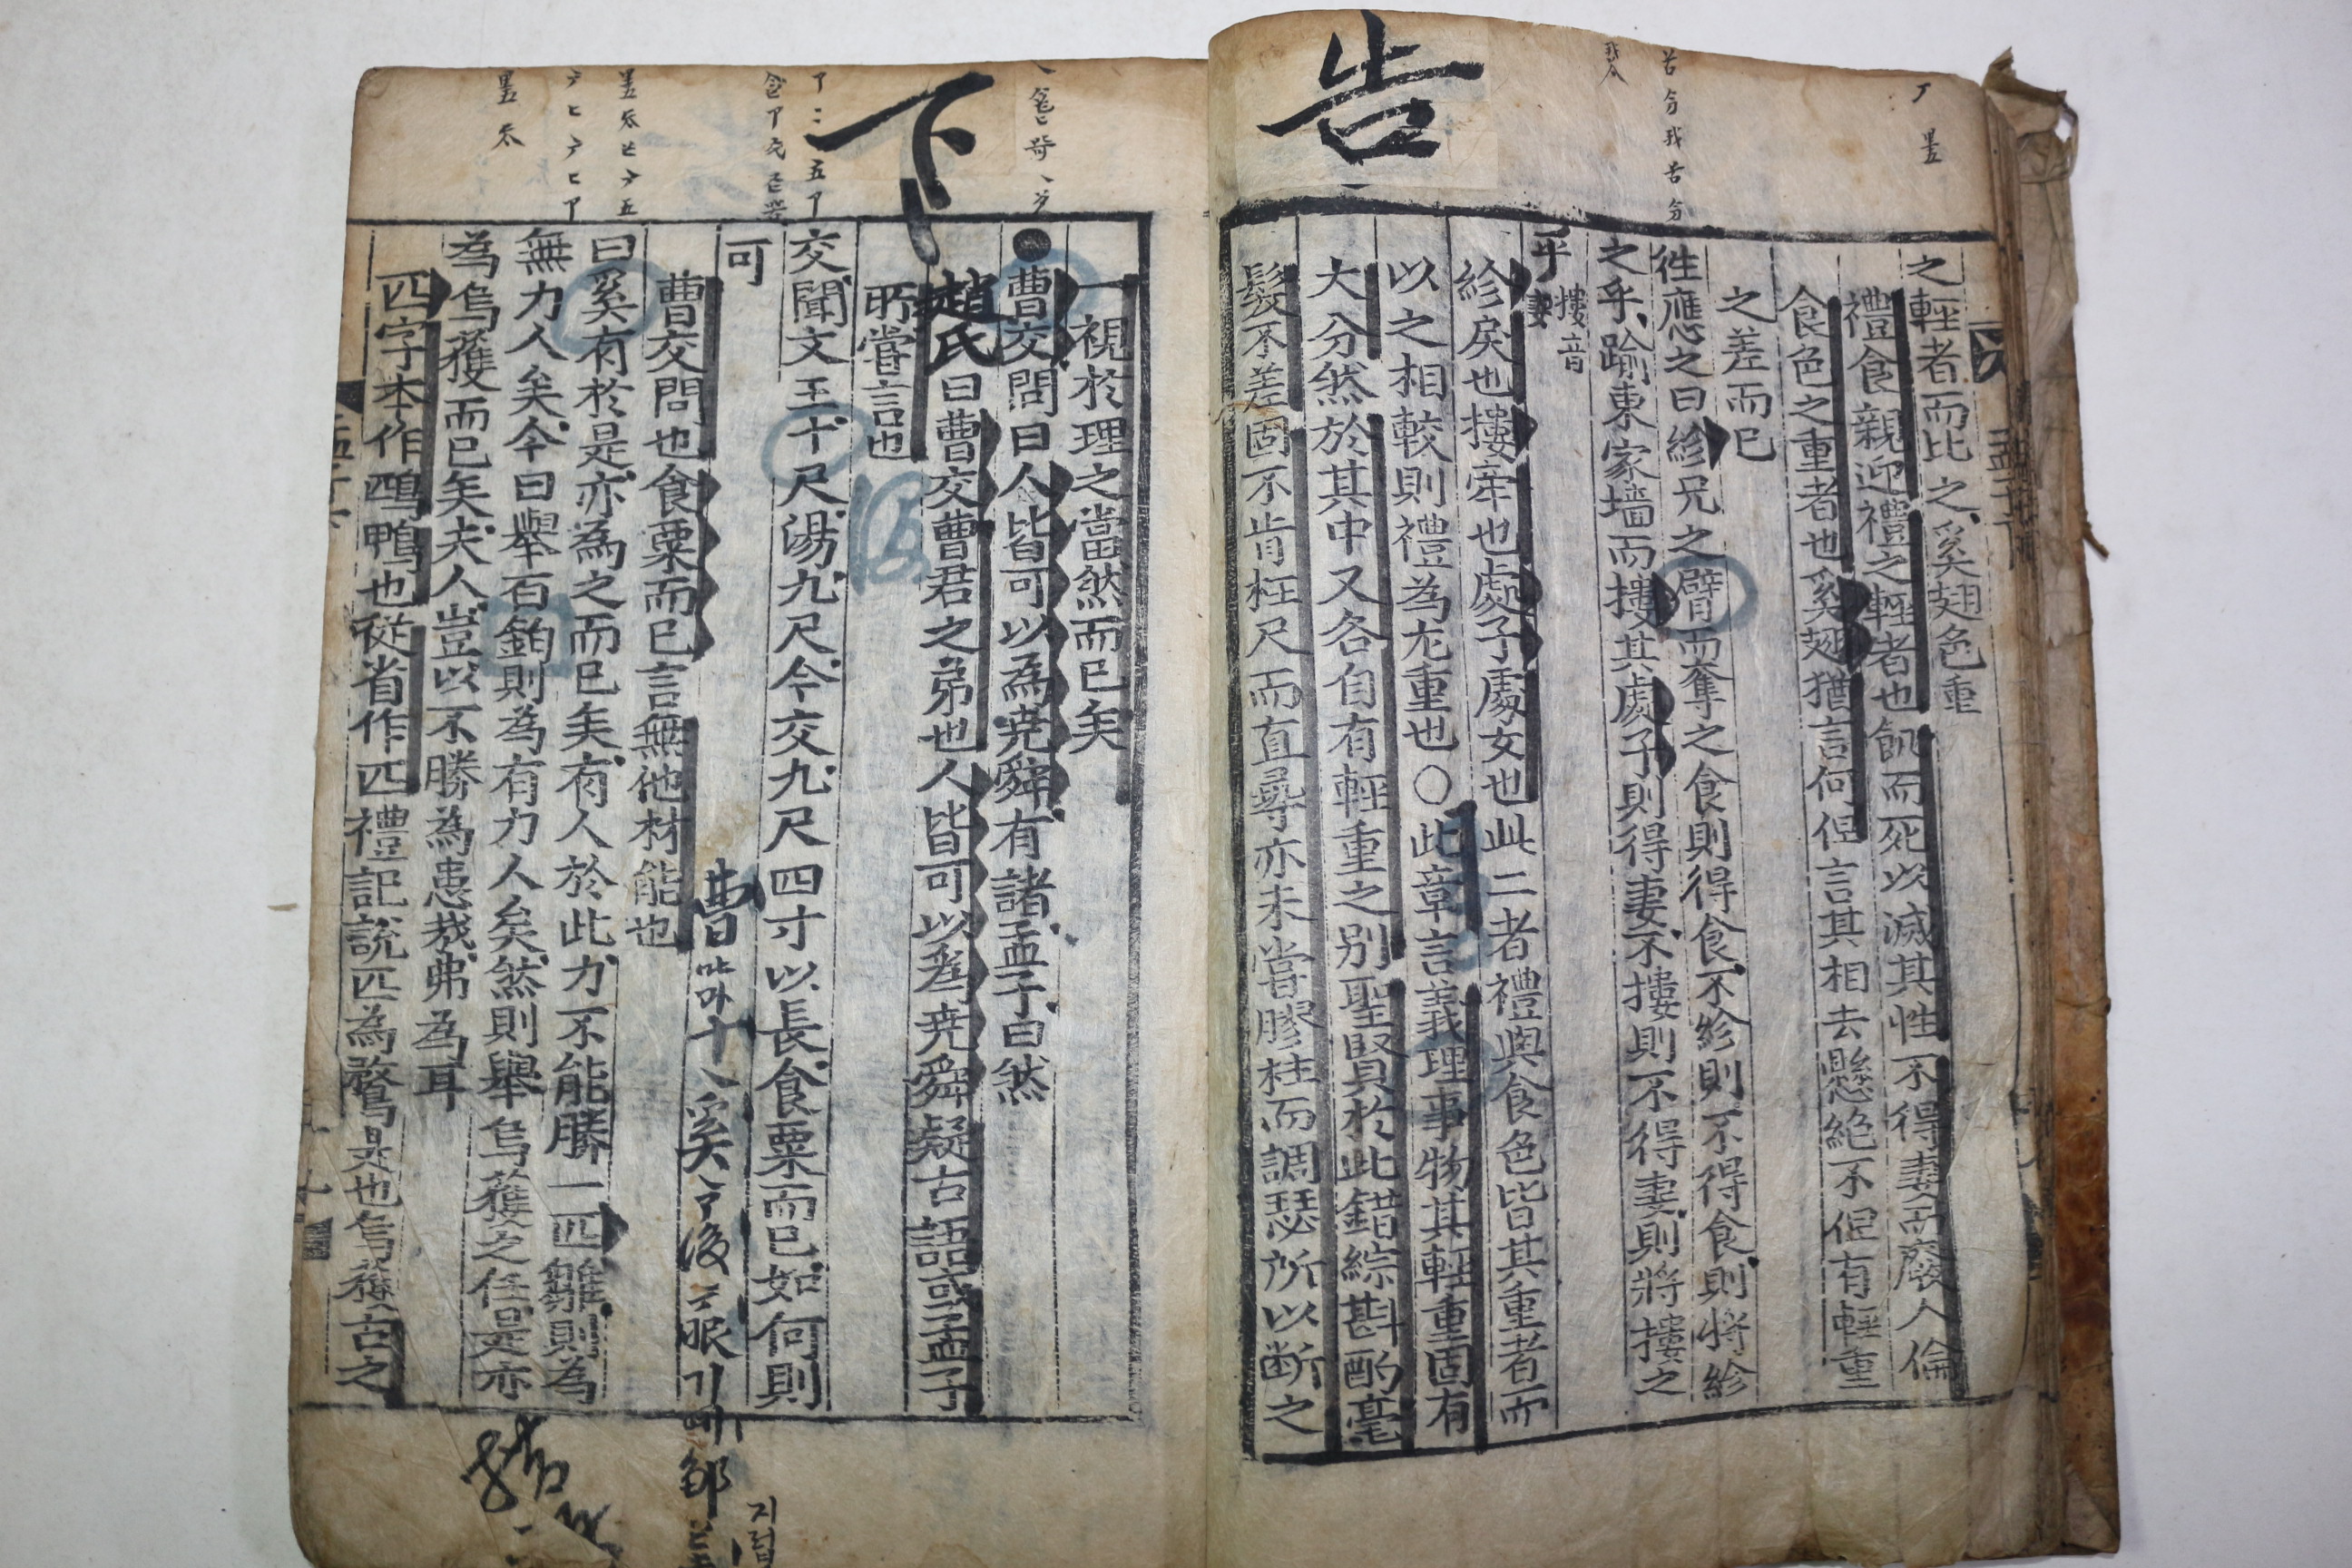 告
之輕者而比之奚翅色重
禮食親迎禮之輕者也飢而死以滅其性不得妻而廢人倫
食色之重者也奚翅猶言何但言其相去懸絶不但有輕重
之差而已
徃應之曰紾兄之臂而奪之食則得食不紾則不得食則將紾
之乎踰東家墻而摟其處子則得妻不摟則不得妻則將摟之
乎
摟音
妻
紾戾也摟牽也處子處女也此二者禮與食色皆其重者而
以之相較則禮為尤重也○此章言義理事物其輕重固有
大分然於其中又各自有輕重之别聖賢於此錯綜斟酌毫
髮不差固不肯枉尺而直尋亦未嘗膠柱而調瑟所以断之
下
一視於理之當然而已矣
●曹交問曰人皆可以為堯舜有諸孟子曰然
趙氏曰曹交曹君之弟也人皆可以爲堯舜疑古語或孟子
所嘗言也
交聞文王十尺湯九尺今交九尺四寸以長食粟而已如何則
可
曹交問也食粟而已言無他材能也
曰奚有於是亦為之而已矣有人於此力不能勝一匹雛則為
無力人矣今曰舉百鈞則為有力人矣然則舉烏獲之任是亦
為烏獲而已矣夫人豈以不勝為患哉弗為耳
匹字本作鴄鴨也從省作匹禮記說匹為鶩是也烏獲古之